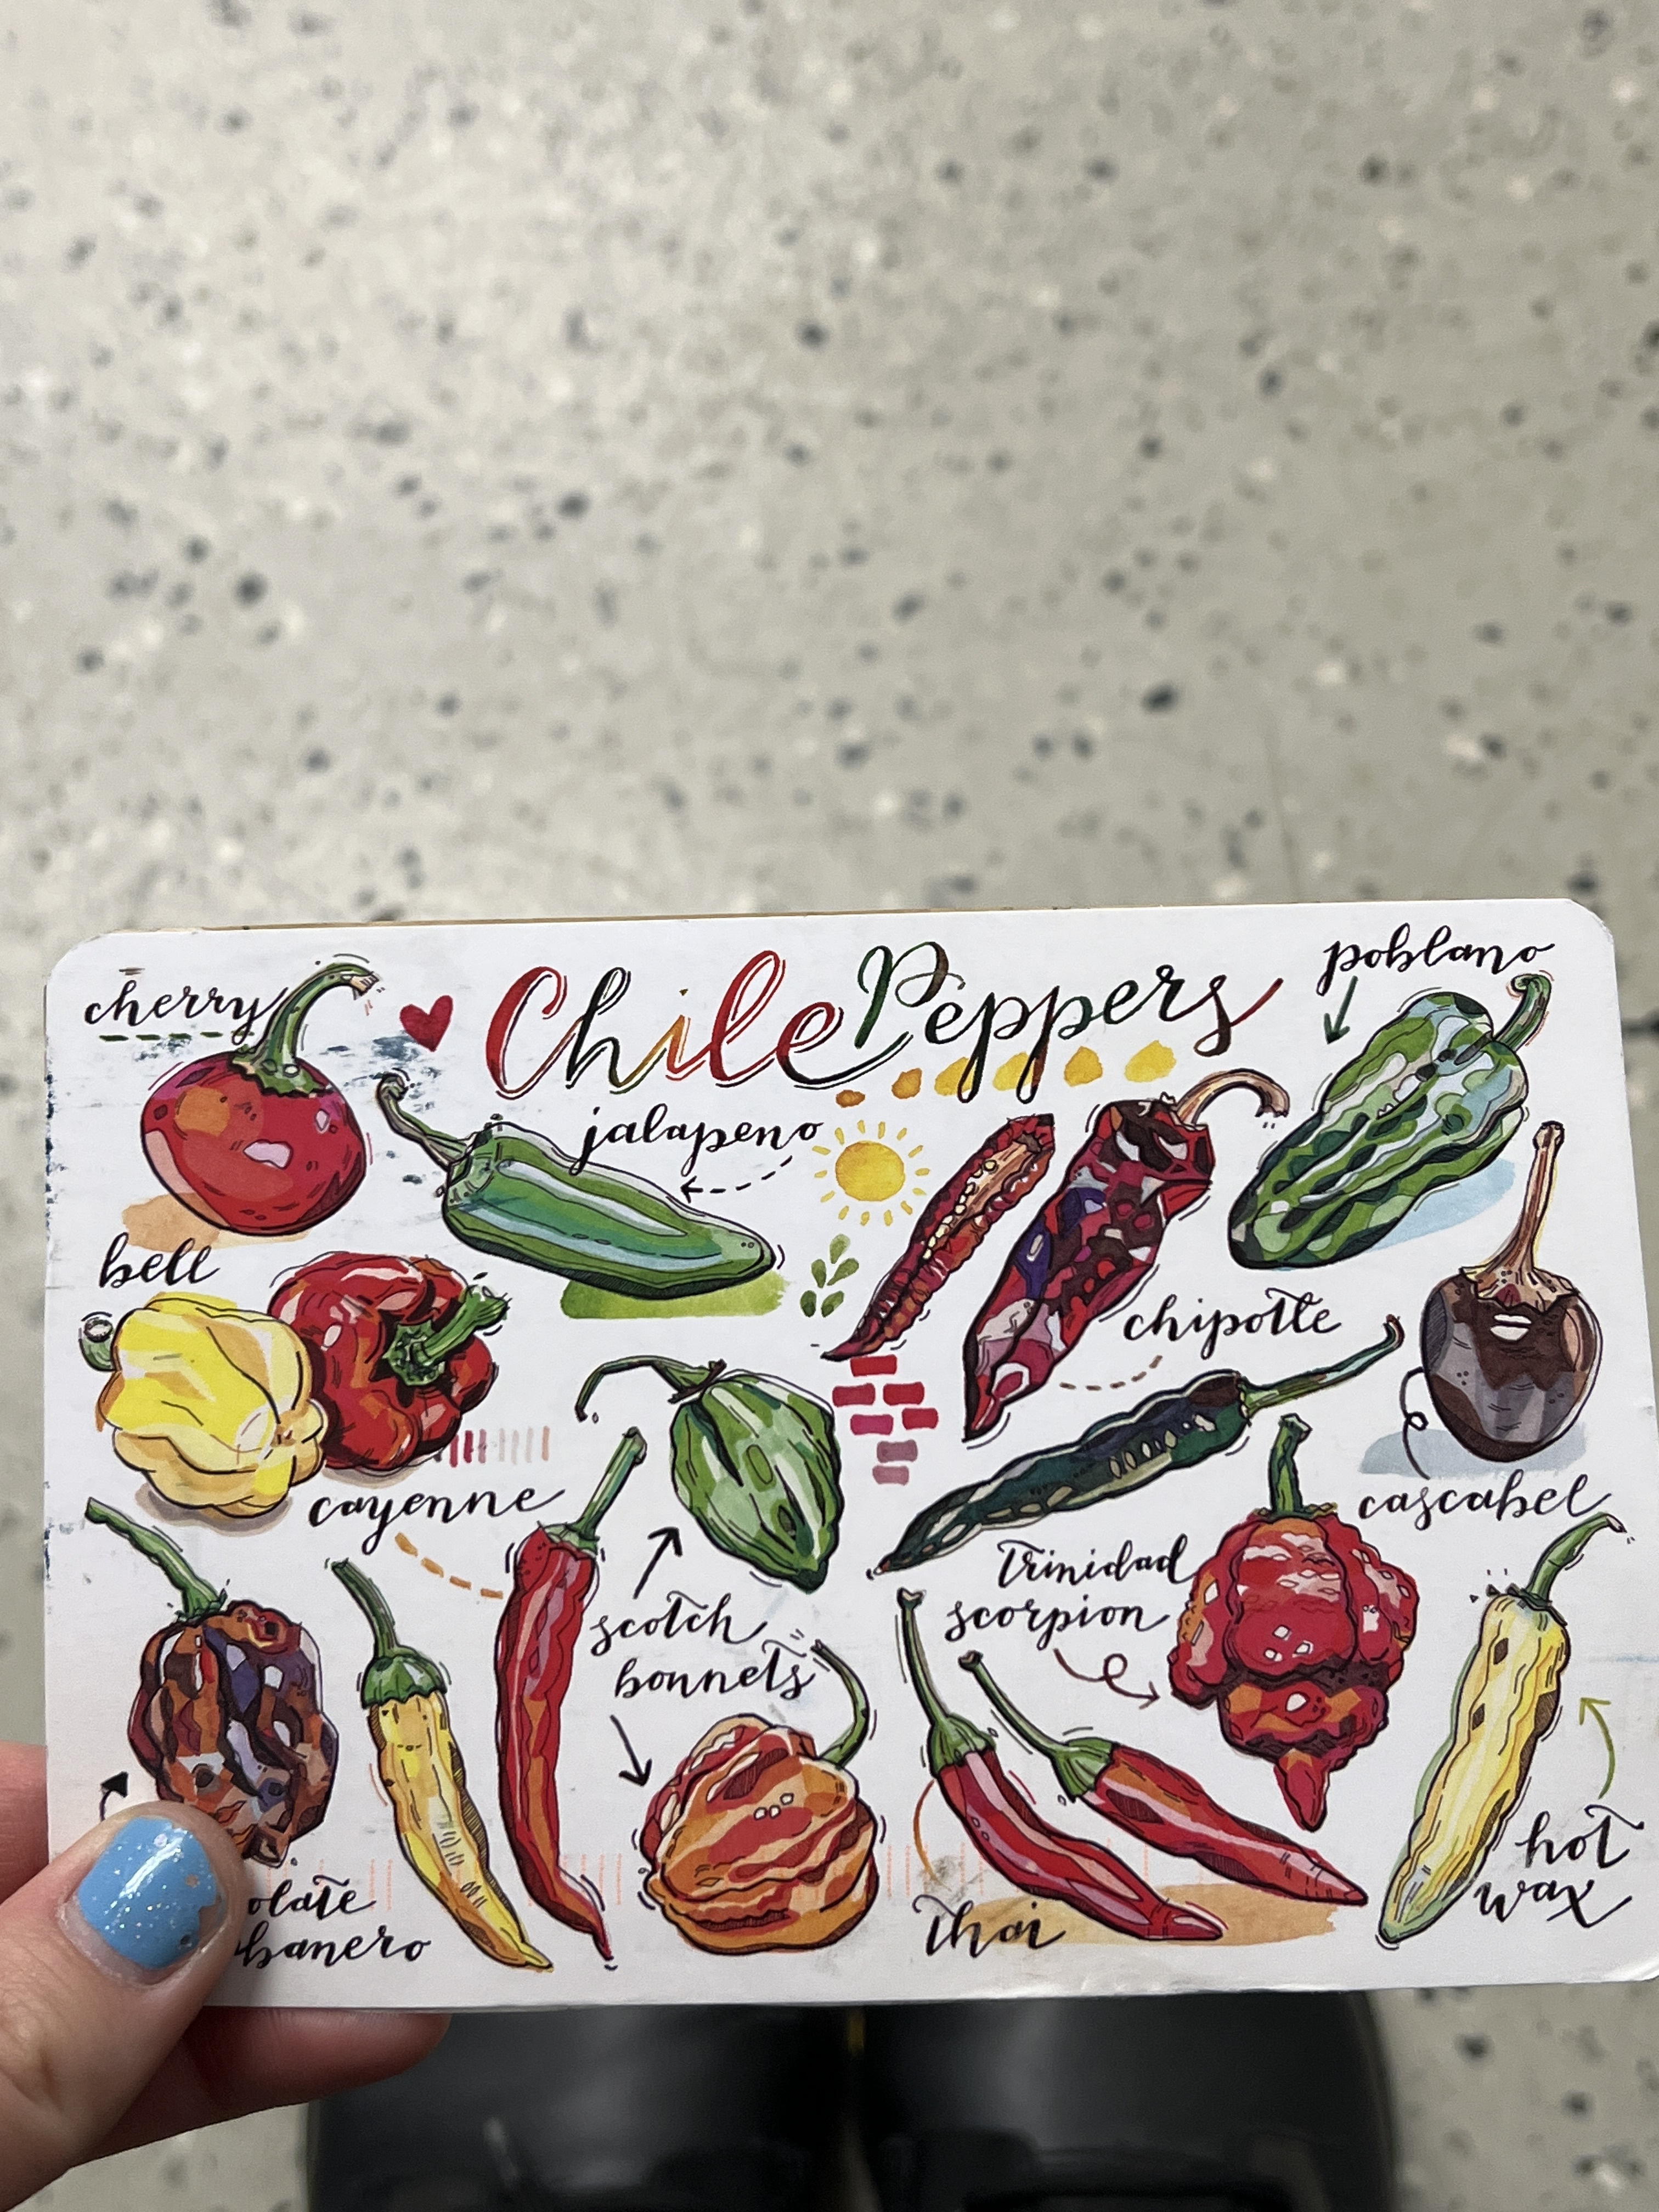 Chile Peppers
poblano
cherry
jalapeno
bell
chipotle
cayenne
cascabel
scotch
bonnets
Trinidad
scorpion
hot
wax
Thai
olate
banero